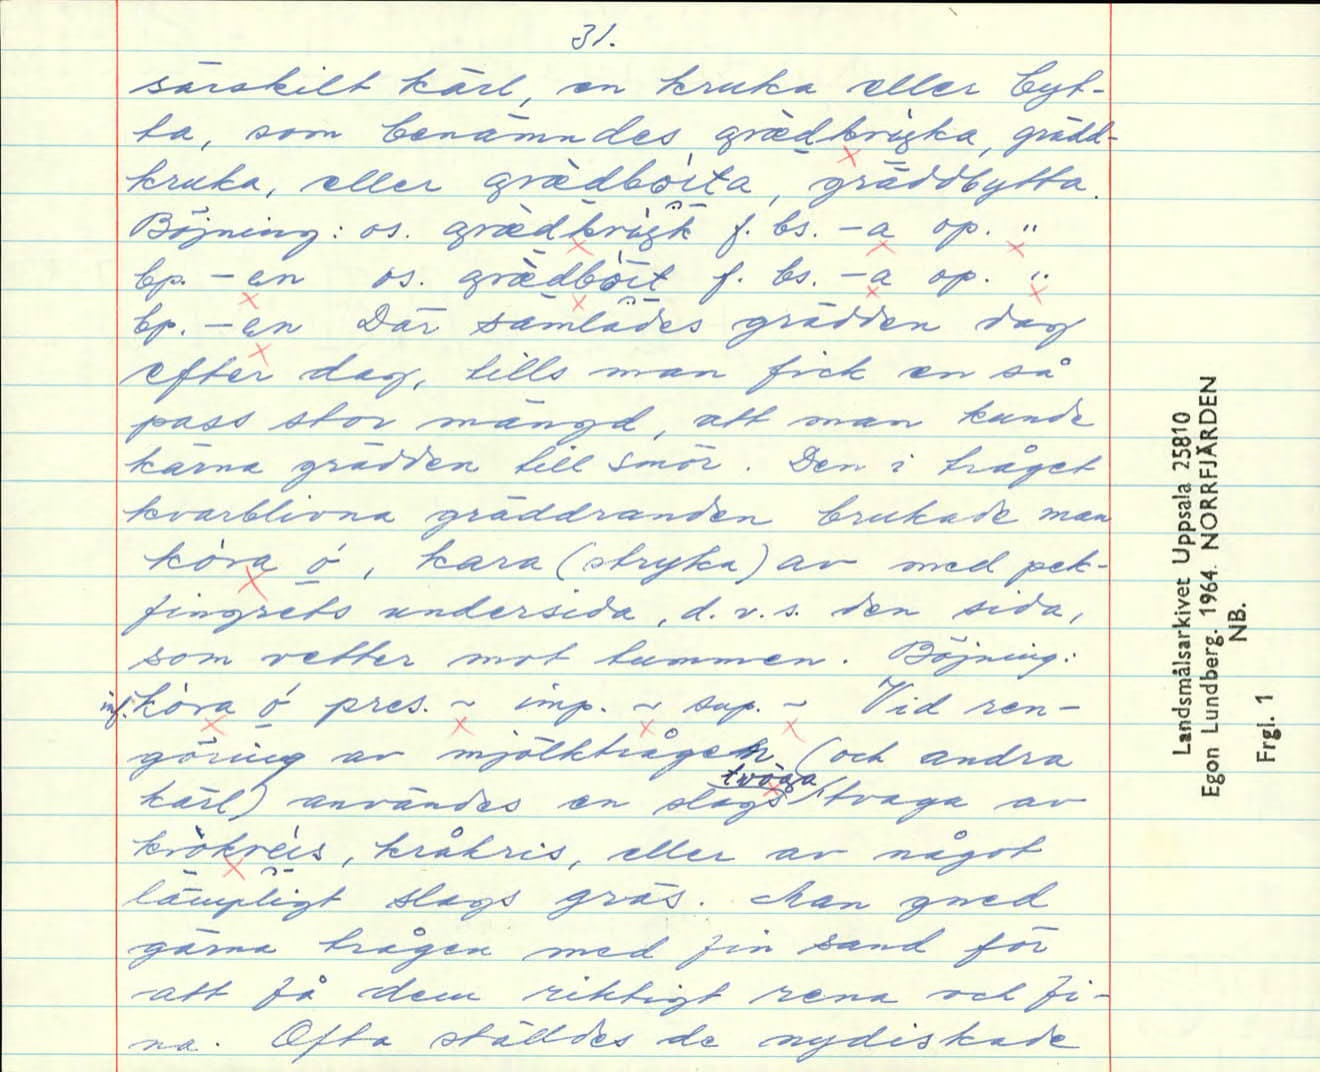 31.
särskilt kärl, en kruka eller byt-
ta, som benämndes grædkrigka, grädd-
kruka, eller grædböita, gräddbytta.
Böjning: os. grædkrigk f. bs. -a op. "
bp. -en os. grædböit f. bs. -a op. "
bp. -en Där samlades grädden dag
efter dag, tills man fick en så
pass stor mängd, att man kunde
kärna grädden till smör. Den i tråget
kvarblivna gräddranden brukade man
kòra ó, kara (stryka) av med pek-
fingrets undersida, d.v.s. den sida,
som vetter mot tummen. Böjning:
inf. kòra ó pres. ~ imp. ~ sup. ~ Vid ren-
göring av mjölktrågen (och andra
kärl) användes en slags tvòga, tvaga av
kròkrèis, kråkris, eller av något
lämpligt slags gräs. Man gned
gärna trågen med fin sand för
att få dem riktigt rena och fi-
na. Ofta ställdes de nydiskade
Landsmålsarkivet Uppsala 25810
Egon Lundberg. 1964. NORRFJÄRDEN
NB.
Frgl. 1